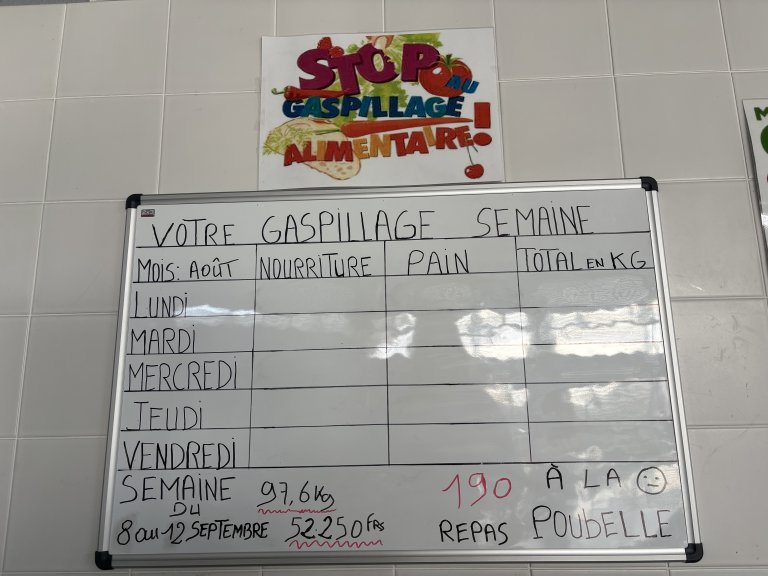 STOP
AU
GASPILLAGE
ALIMENTAIRE!
VOTRE GASPILLAGE SEMAINE
MOIS: AOÛT NOURRITURE PAIN TOTAL EN KG
LUNDI
MARDI
MERCREDI
JEUDI
VENDREDI
SEMAINE 97,6 Kg 190 À LA
DU
8 au 12 SEPTEMBRE 52.250 Frs REPAS POUBELLE